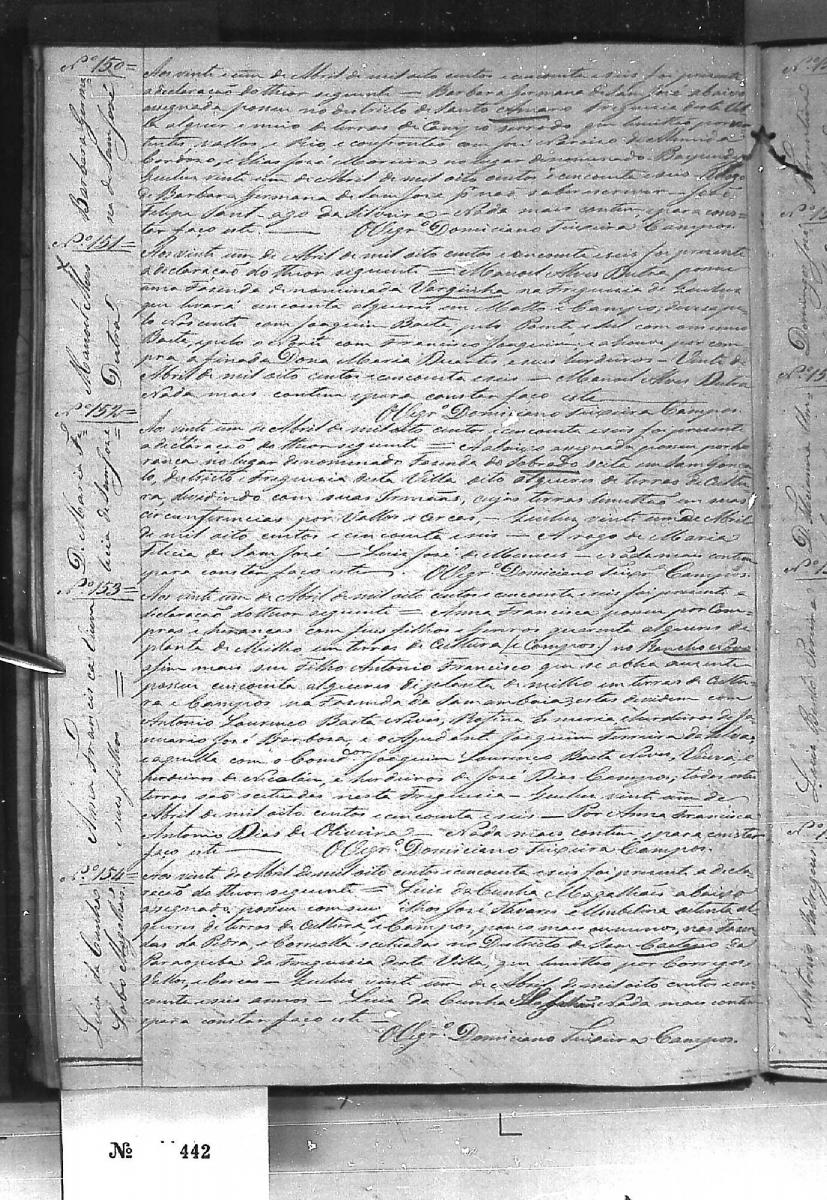 Nº 150=
Barbara Germana de Sam José
Aos vinte e um de Abril de mil oito centos e cincoenta e seis foi presente
a declaração do theor seguinte = Barbara Germana de Sam José abaixo
asignada possue no districto de Santo Amaro Freguesia desta Vil
la alquer e meio de terras de Campo serrado que limitão por ver
tentes, vallos, e Rio, e confrontão com José Ribeiro de Miranda
Cardoso, e Elias José Moreira no lugar denominado
Queluz vinte um de Abril de mil oito centos e cincoenta e seis A Rogo
de Barbara Germana de Sam José pr não saber escrever - José
Felipe Sant-ago da Silveira - Nada mais contem, e para cons-
tar faço este. O Vigrº Domiciano Teixeira Campos.
Nº 151=
Manoel Alves Dutra
Aos vinte um de Abril de mil oito centos e cincoenta e seis foi presente
a declaração do theor seguinte = Manoel Alves Dutra possue
uma Fazenda denominada Varginha na Freguesia de Queluz
que levará cincoenta alqueres em Matto e Campos, divisa pe-
lo Nascente com Joaquim Baêta, pelo Poente e Sul com o mesmo
Baêta, e pelo o Norte com Francisco Joaquim, e a houve por com
pra a finada Dona Maria Duarte e seus herdeiros - Vinte de
Abril de mil oito centos e cincoenta e seis - Manoel Alves Dutra
Nada mais contem e para constar faço este
O Vigrº Domiciano Teixeira Campos
Nº 152=
D. Maria Felicia de Sam José=
Aos vinte um de Abril de mil oito centos e cincoenta e seis foi presente
a declaração do theor seguinte = A abaixo asignada possue por he
rança no lugar denominado Fazenda do Sobrado sita em Sam Gonça
lo, districto e Freguesia desta Villa oito alqueres de terras de Cultu
ra, dividindo com suas Irmãas, cujas terras limitão em suas
circunferencias por Vallos e Cercas, - Queluz vinte um de Abril
de mil oito centos e cincoenta e seis - A rogo de Maria
Felicia de Sam José - Luis José de - Nada mais contem
e para constar faço este. O Vigrº Domiciano Teixrª Campos.
Nº 153=
D. Anna Francisca
e seus filhos =
Aos vinte um de Abril de mil oito centos e cincoenta e seis foi presente a
declaração do theor seguinte = Anna Francisca possue por Com
pras e heranças com seus filhos e genros quarenta alqueres de
planta de Milho em terras de Cultura (e Campos) no Rancho Novo
assim mais seu Filho Antonio Francisco que se acha auzente
possue cincoenta alqueres de planta de milho em terras de Cultu
ra e Campos na Fazenda da Samambaia; estas dividem com
Antonio Lourenço Baêta Neves, e herdeiros de Ja
nuario José Barbosa, e o Ajudante Joaquim Ferreira da Silva,
e aquella com o Comdor Joaquim Lourenço Baêta Neves, Viuva, e
herdeiros de e herdeiros de José Dias Campos; todas estas
terras são setuadas nesta Freguesia - Queluz vinte um de
Abril de mil oito centos e cincoenta e seis - Por Anna Francisca
Antonio Dias de Oliveira - Nada mais contem, e para constar
faço este O Vigrº Domiciano Teixeira Campos.
Nº 154=
Luis da Cunha Magalhães
Aos vinte um de Abril de mil oito centos e cincoenta e seis foi presente a decla-
ração do theor seguinte = Luis da Cunha Magalhães abaixo
asignado possue com seus José Tavares e Umbelina oitenta al
queres de terras de Cultura e Campos, pouco mais ou menos, nas Fazen
das da Pedra, e setuadas no Districto de Sam Caetano da
Paraopeba da Freguesia desta Villa, que limitão por Corregos
Vallos, e Cercas - Queluz vinte um de Abril de mil oito centos e cin
coenta e seis annos - Luis da Cunha Magalhães Nada mais contem
e para constar faço este -
O Vigrº Domiciano Teixeira Campos.
Nº 442